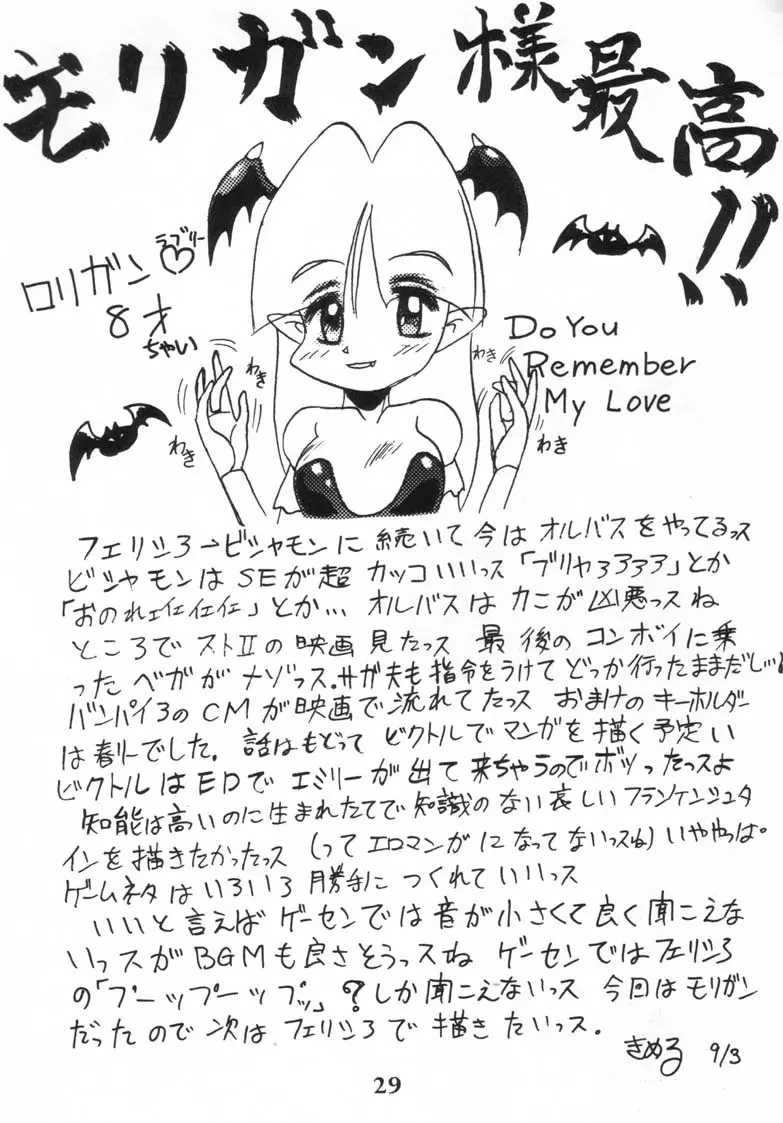 モリガン様最高!!
ロリガン
ラブリー
8才
ちゃい
わき
わき
わき
わき
Do You
Remember
My Love
フェリシろ→ビシャモンに続いて今はオルバスをやってるっス
ビシャモンはSEが超カッコいいっス「ブリャろろろろ」とか
「おのれェィィィィ」とか… オルバスはカニが凶悪っスね
ところでストⅡの映画見たっス 最後のコンボイに乗
ったベガがナゾっス。サガ夫も指令をうけてどっか行ったままだし…
バンパイろのCMが映画で流れてたっス おまけのキーホルダー
は春リーでした。話はもどって ビクトルでマンガを描く予定い
ビクトルはEDでエミリーが出て来ちゃうのでボツったっスよ
知能は高いのに生まれたてで知識のない哀しいフランケンシュタ
インを描きたかったっス(ってエロマンガになってないっスね)いややっぱ。
ゲームネタはいろいろ勝手につくれていいっス
いいと言えばゲーセンでは音が小さくて良く聞こえな
いっスがBGMも良さそうっスね ゲーセンではフェリシろ
の「プーップーップッ」?しか聞こえないっス 今回はモリガン
だったので次はフェリシろで描きたいっス。
きめる 9/3
29